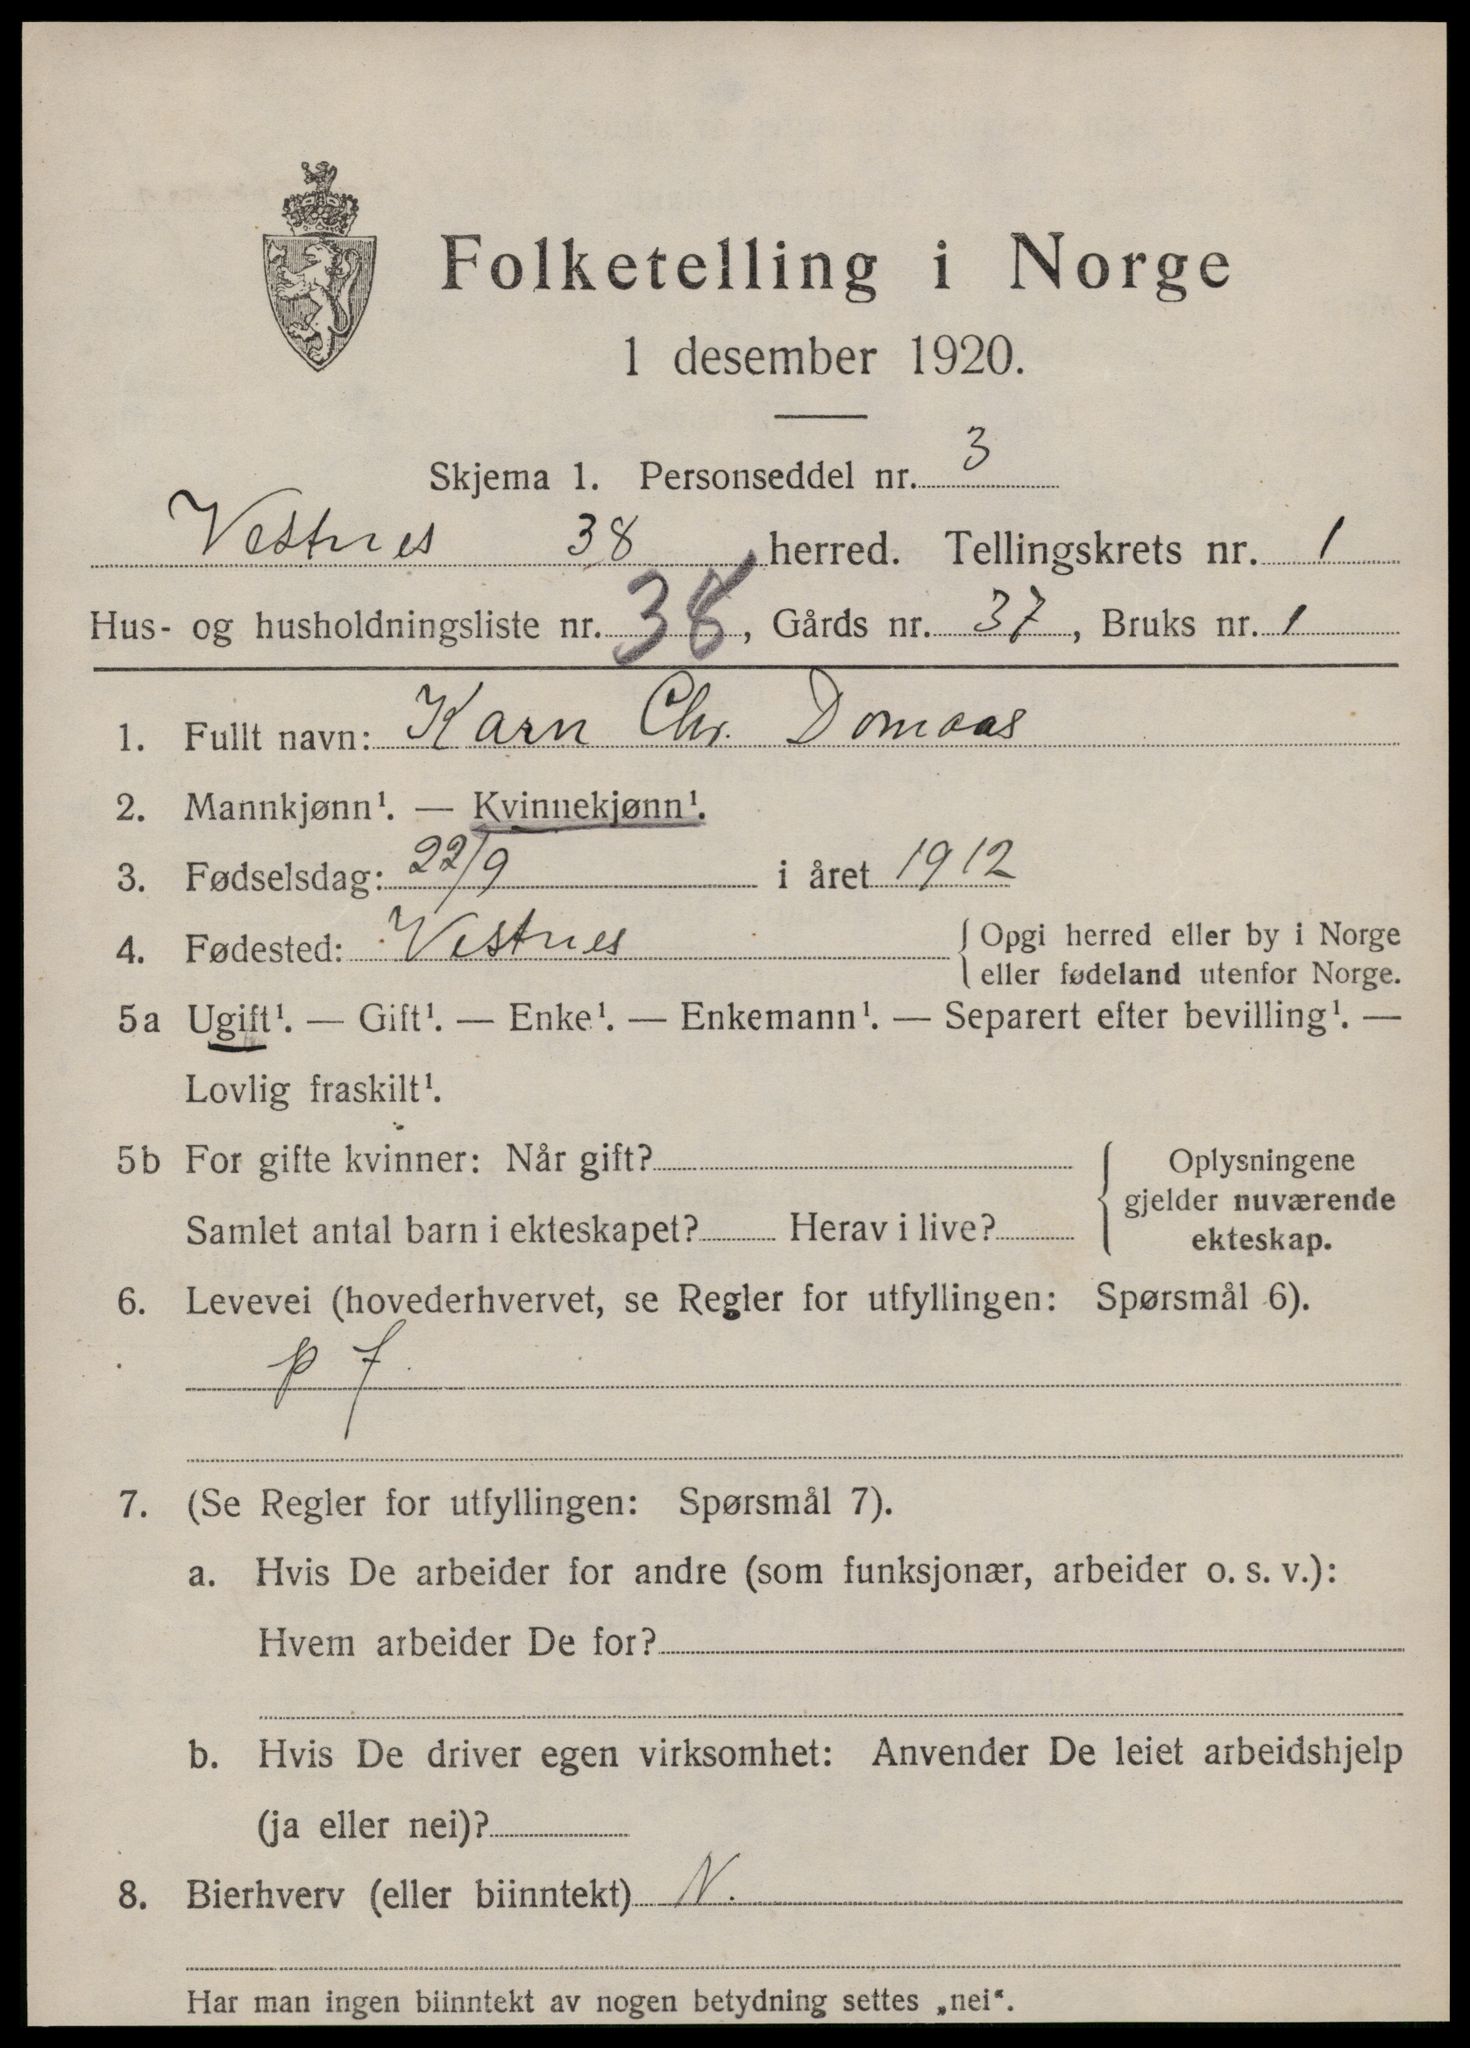 Folketelling i Norge
1 desember 1920.
Skjema 1. Personseddel nr. 3
Vestnes 38 herred. Tellingskrets nr. 1
Hus- og husholdningsliste nr. 38, Gårds nr. 37, Bruks nr. 1
1. Fullt navn: Karn Chr. Domaas
2. Mannkjønn¹. — Kvinnekjønn¹.
3. Fødselsdag: 22/9 i året 1912
4. Fødested: Vestnes { Opgi herred eller by i Norge
eller fødeland utenfor Norge.
5a Ugift¹. — Gift¹. — Enke¹. — Enkemann¹. — Separert efter bevilling¹. —
Lovlig fraskilt¹.
5b For gifte kvinner: Når gift?
Samlet antal barn i ekteskapet? Herav i live?
{ Oplysningene
gjelder nuværende
ekteskap.
6. Levevei (hovederhvervet, se Regler for utfyllingen: Spørsmål 6).
p f
7. (Se Regler for utfyllingen: Spørsmål 7).
a. Hvis De arbeider for andre (som funksjonær, arbeider o. s. v.):
Hvem arbeider De for?
b. Hvis De driver egen virksomhet: Anvender De leiet arbeidshjelp
(ja eller nei)?
8. Bierhverv (eller biinntekt) N.
Har man ingen biinntekt av nogen betydning settes „nei“.